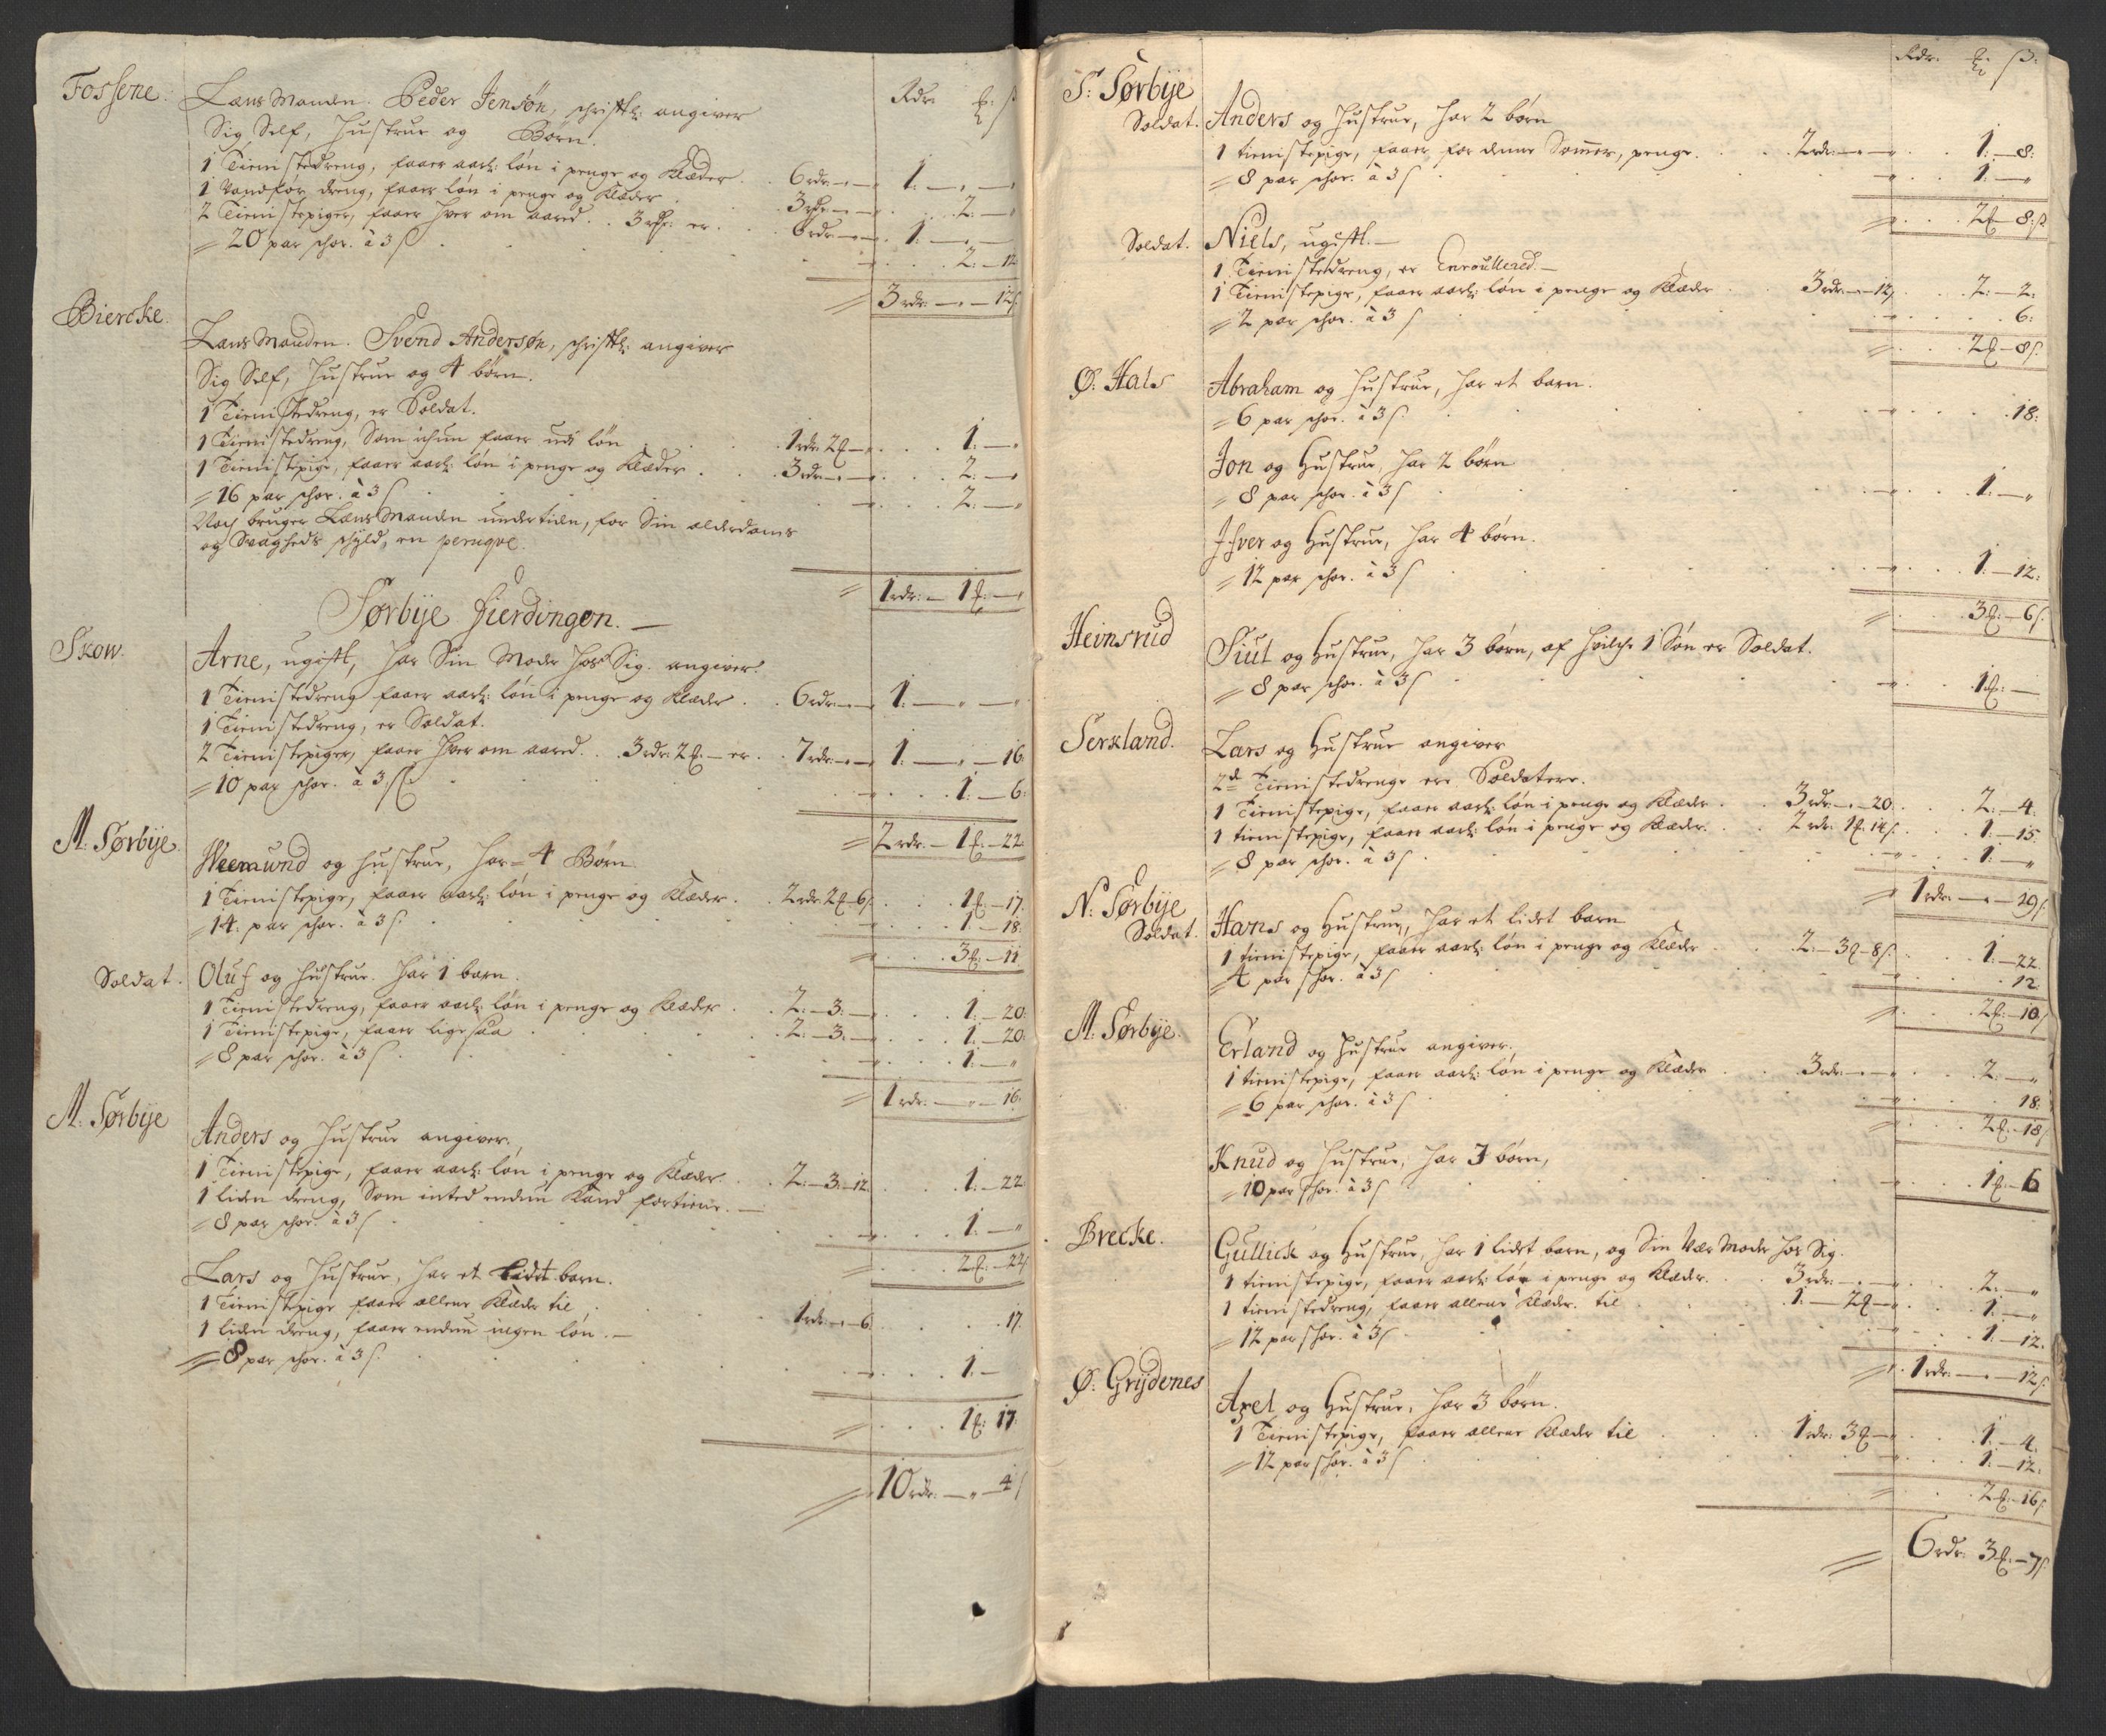 Rdr. ℔: ß
Fossene. Lens Manden. Peder Jensøn, schriftl: angiver
Sig Self, Hustrue og Børn.
1 Tienistedreng, faaer aarl: løn i penge og Klæder . . 6 rdr.—„—„ 1:—„—„
1 Vandfør dreng, faaer løn i penge og Klæder . 3 rdr—„—„ . . 2:—„
2 Tienistepiger, faaer hver om aared . . 3 rdr: er . . 6 rdr—„—„ 1:—„—
= 20 par schor. à 3 ß . . . —„ . . 2:—12
= 3 rdr:—„—12 ß
Biercke. Lens Manden. Svend Andersøn, schriftl: angiver
Sig Self, Hustrue og 4 børn.
1 Tienistedreng, er Soldat.
1 Tienistedreng, Som ichun faaer udi løn . . . 1 rdr 2 ℔—„ . . 1.—„
1 Tienistepige, faaer aarl: løn i penge og Klæder . . 3 rdr—„—„ . . 2.—„
= 16 par schor. à 3 ß . . . —„ . . 2.—„
Noch bruger Lens Manden undertiden, for Sin alderdoms
og Svagheds schyld, en peruqve.
= 1 rdr:—1 ℔:—„
Sørbÿe Fierdingen.—
Skow. Arne, ugift, har Sin Moder hos Sig. angiver.
1 Tienistedreng faaer aarl: løn i penge og Klæder . . 6 rdr—„—„ 1.—„—„
1 Tienistedreng, er Soldat.
2 Tienistepiger, faaer hver om aared . . 3 rdr: 2 ℔:— er . . 7 rdr:—„—„ 1.—„—16
= 10 par schor. à 3 ß . . . —„ . . 1:—6:
= 2 rdr.—1 ℔—22.
M. Sørbÿe. Weemund og Hustrue, har 4 Børn.
1 Tienistepige, faaer aarl: løn i penge og Klæder . . 2 rdr 2 ℔—6 ß . . 1 ℔—17.
= 14. par schor. à 3 ß. . . . —„ . . 1—18.
= . . 3 ℔:—11
Soldat. Oluf og Hustrue. har 1 barn.
1 Tienistedreng, faaer aarl: løn i penge og Klæder . . 2.—3.—„ . . 1.—20.
1 Tienistepige, faaer ligesaa . . . 2.—3.—„ . . 1.—20.
= 8 par schor. à 3 ß . . . —„ . . 1.—„
= 1 rdr:—„—16.
M. Sørbÿe Anders og Hustrue angiver.
1 Tienistepige, faaer aarl: løn i penge og Klæder . . 2.—3.—12. . . 1.—22.
1 liden dreng, Som inted endnu Kand fortiene.—
= 8 par schor. à 3 ß . . . —„ . . 1.—„
= . . 2 ℔.—22 ß
Lars og Hustrue, har et lidet barn.
1 Tienistepige faaer allene Klæder til . . . 1 rdr:—„—6. . . . 17.
1 liden dreng, faaer endnu ingen løn.—
= 8 par schor. à 3 ß. . . . —„ . . 1.—
= . . 1 ℔: 17.
= 10 rdr:—„—4 ß
Rdr. ℔: ß:
S: Sørbÿe
Soldat. Anders og Hustrue, har 2 børn
1 tienistepige, faaer for denne Sommer, penge . . 2 rdr:—„—„ . . 1.—8:
= 8 par schor. à 3 ß . . . —„ . . 1.—„
= . . 2 ℔—8: ß
Soldat. Niels, ugift.—
1 Tienistedreng, er Enroullered.—
1 Tienistepige, faaer aarl: løn i penge og Klæder . . 3 rdr—„—12 . . 2.—2.
= 2 par schor. à 3 ß . . . —„ . . 6:
= . . 2 ℔—8 ß.
Ø. Hals Abraham og Hustrue, har et barn.
= 6 par schor. à 3 ß . . . —„ . . 18.
Jon og Hustrue, har 2 børn
= 8 par schor. à 3 ß . . . —„ . . 1.—„
Ifver og Hustrue, har 4 børn.
= 12 par schor. à 3 ß . . . —„ . . 1.—12.
= . . 3 ℔:—6 ß.
Heinsrud Siul og Hustrue, har 3 børn, af hvilche 1 Søn er Soldat.
= 8 par schor. à 3 ß . . . —„ . . 1 ℔:—
Serkland. Lars og Hustrue angiver
2de Tienistedrenge ere Soldatere.
1 Tienistepige, faaer aarl: løn i penge og Klæder . . 3 rdr.—„—20 . . 2.—4.
1 tienistepige, faaer aarl: løn i penge og Klæder . . 2 rdr: 1 ℔. 14 ß . . 1.—15.
= 8 par schor. à 3 ß . . . —„ . . 1.—„
= 1 rdr:—„—29 ß.
N: Sørbÿe
Soldat. Hans og Hustrue, har et lidet barn
1 tienistepige, faaer aarl: løn i penge og Klæder . . 2.—3 ℔—8 ß. . . 1.—22.
= 4 par schor. à 3 ß . . . —„ . . 12.
= . . 2 ℔:—10 ß
M. Sørbÿe. Erland og Hustrue angiver.
1 tienistepige, faaer aarl: løn i penge og Klæder . . 3 rdr.—„—„ . . 2.—„
= 6 par schor. à 3 ß . . . —„ . . 18.
= . . 2 ℔.—18 ß
Knud og Hustrue, har 3 børn,
= 10 par schor. à 3 ß . . . —„ . . 1 ℔.—6
Brecke. Gullick og Hustrue, har 1 lidet barn, og Sin Vær Moder hos Sig.
1 tienistepige, faaer aarl: løn i penge og Klæder. . . 3 rdr.—„—„ . . 2.—„
1 tienistedreng, faaer allene Klæder. til . . . 1.—2 ℔—„ . . 1.—„
= 12 par schor. à 3 ß . . . —„ . . 1.—12.
= 1 rdr:—„—12 ß.
Ø: Grÿdenes Axel og Hustrue, har 3 børn.
1 Tienistepige, faaer allene Klæder til . . . 1 rdr: 3 ℔—„ . . 1.—4.
= 12 par schor. à 3 ß . . . —„ . . 1.—12.
= . . 2 ℔.—16 ß.
= 6 rdr. 3 ℔.—7 ß.